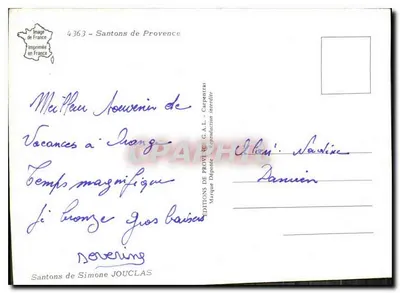 4363 - Santons de Provence
Image
de France
Imprimée
en France
Meilleur souvenir de
Vacances à Orange
Temps magnifique
gros baisers
Severine
EDITIONS DE PROVENCE
Carpentras
Marque Déposée reproduction interdite
Nadine
Damien
Santons de Simone JOUCLAS